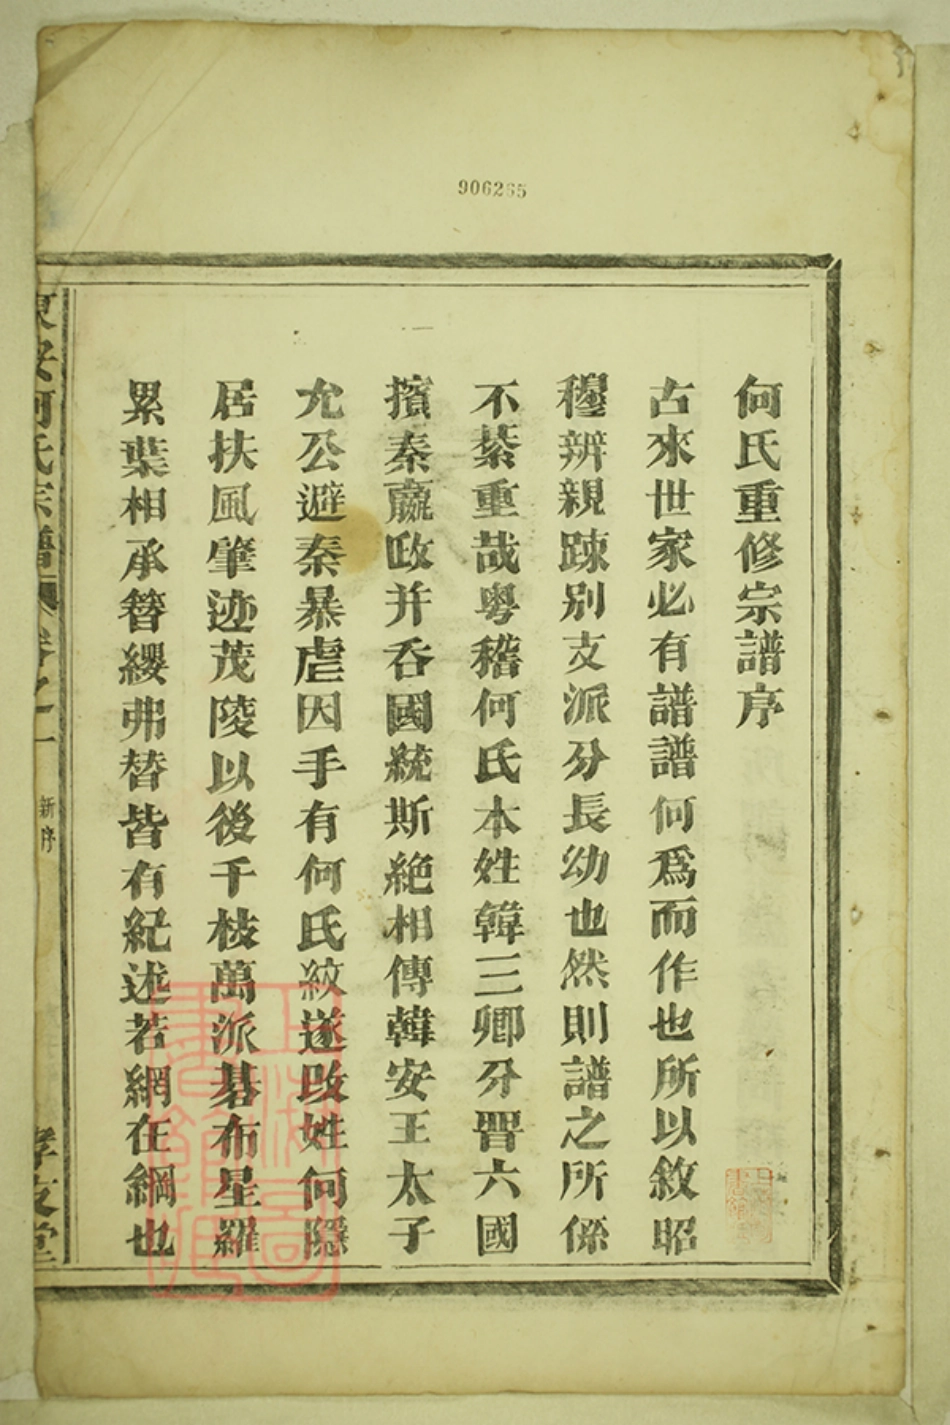 906265
何氏重修宗譜序
古來世家必有譜譜何為而作也所以敘昭
穆辨親踈別支派分長幼也然則譜之所係
不綦重哉粵稽何氏本姓韓三卿分晉六國
擯秦嬴政并吞國統斯絕相傳韓安王太子
允公避秦暴虐因手有何氏紋遂改姓何隱
居扶風肇迹茂陵以後千枝萬派碁布星羅
累葉相承簪纓弗替皆有紀述若網在綱也
東安何氏宗譜 卷之一 新序 孝友堂